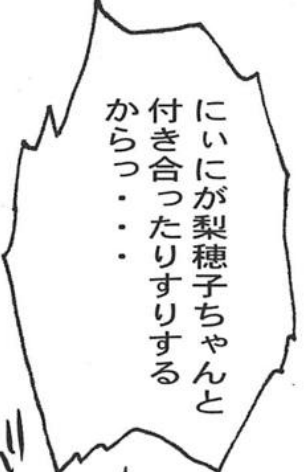 にぃにが梨穂子ちゃんと
付き合ったりすりする
からっ・・・